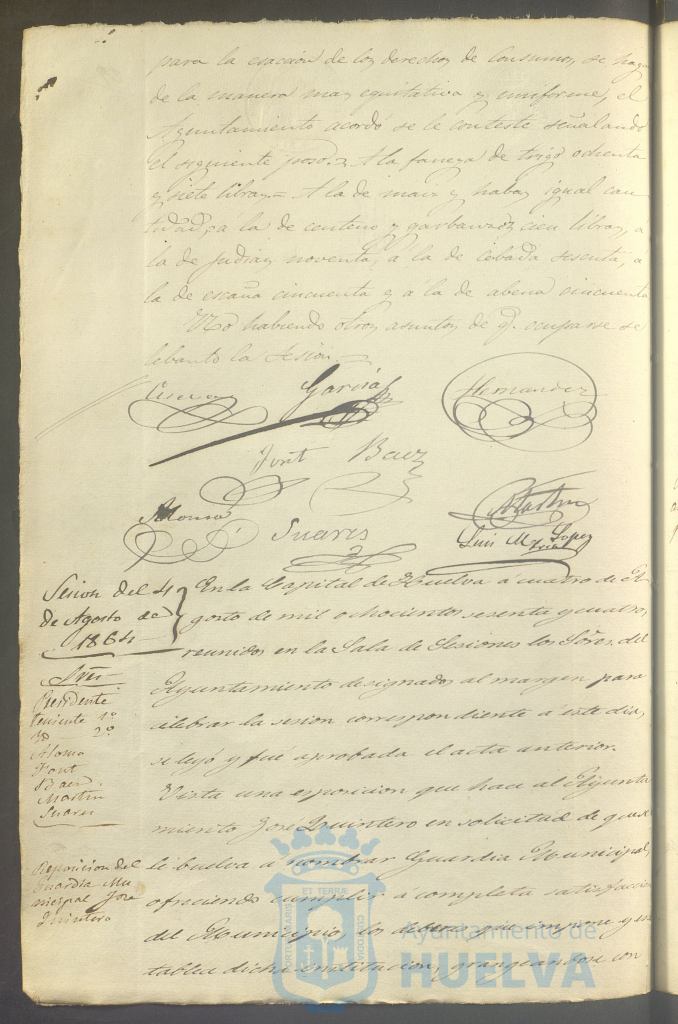 para la esaccion de los derechos de Consumos, se haga
de la manera mas equitativa y uniforme, el
Ayuntamiento acordó se le conteste señalando
el siguiente peso. A la fanega de trigo ochenta
y siete libras. A la de maiz y habas igual can
tidad, a la de centeno y garbanzos cien libras, á
la de Judias noventa, á la de cebada sesenta, á
la de escaña cincuenta y á la de abena cincuenta
No habiendo otros asuntos de q. ocuparse se
lebantó la Sesion.
Garcia Hernandez
Font Baez
Alonso Suares
Luis M. Lopez
Sesion del 4
de Agosto de
1864
Sres
Presidente
Teniente 1º
Yd 2º
Alonso
Font
Baez
Martin
Suares
En la Capital de Huelva á cuatro de A-
gosto de mil ochocientos sesenta y cuatro,
reunidos en la Sala de Sesiones los Sõres. del
Ayuntamiento designados al margen para
celebrar la sesion correspondiente á este dia,
se leyó y fué aprobada el acta anterior.
Vista una esposicion que hace al Ayunta
miento José Quintero en solicitud de que se
Reposicion del
Guardia Mu
nicipal José
Quintero
le buelva á nombrar Guardia Municipal,
ofreciendo cumplir á completa satisfaccion
del Municipio, los deberes que impone
dicha institucion, grangeandose con
PORTUS MARIS ET TERRÆ CUSTODIA
Ayuntamiento de
HUELVA